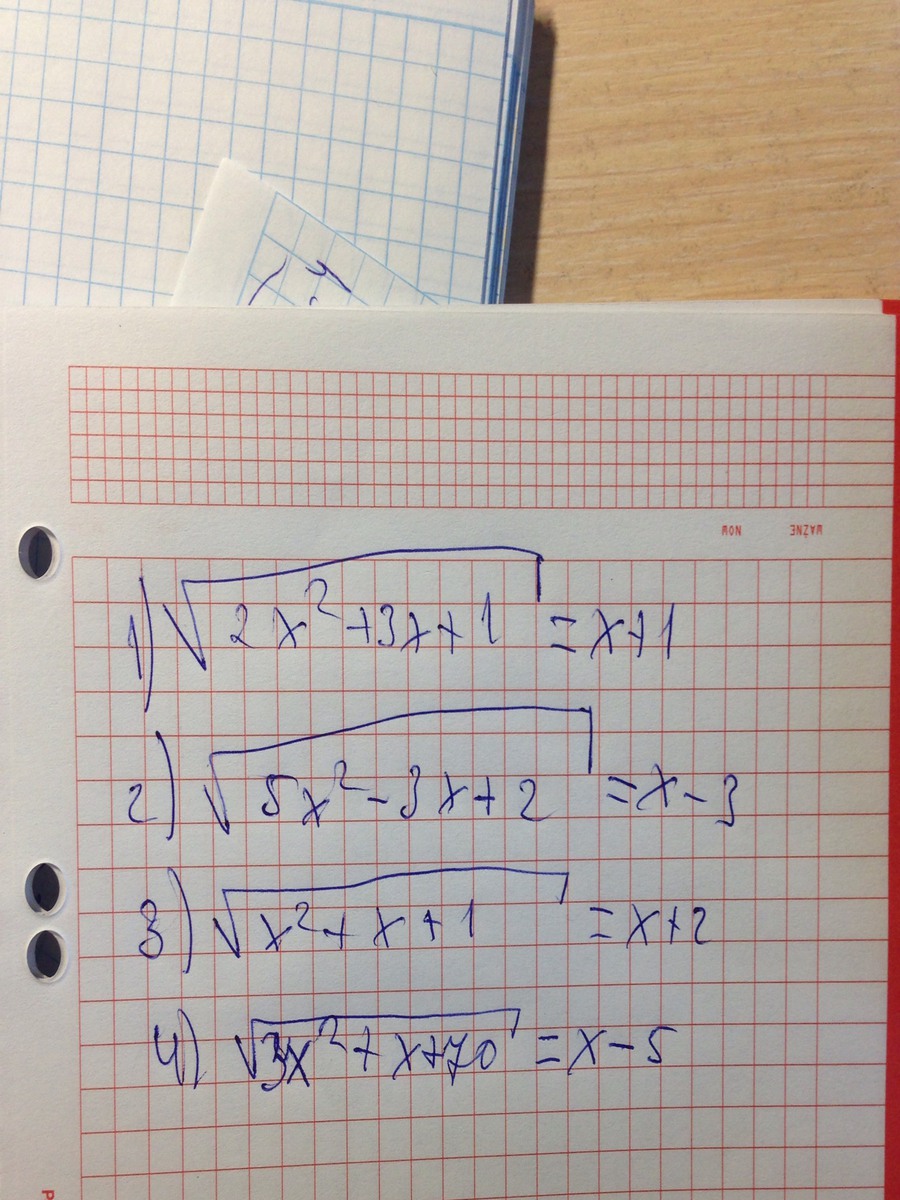 WAŻNE
NOW
1) √2x²+3x+1 = x+1
2) √5x²-3x+2 = x-3
3) √x²+x+1 = x+2
4) √3x²+x+70 = x-5